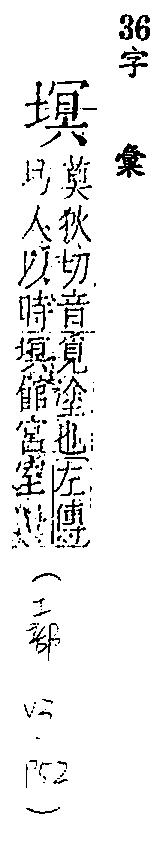 36
字彙
塓
莫狄切音覓塗也左傳
圬人以時塓館宮室
(土部 V3·P52)